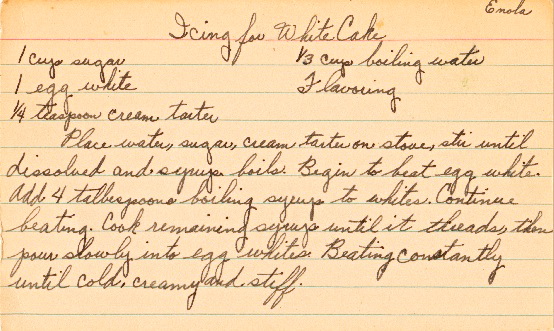 Enola
Icing for White Cake
1 cup sugar 1/3 cup boiling water
1 egg white Flavoring
1/4 teaspoon cream tarter
Place water, sugar, cream tarter on stove, stir until
dissolved and syrup boils. Begin to beat egg white.
Add 4 talbespoons boiling syrup to whites. Continue
beating. Cook remaining syrup until it threads, then
pour slowly into egg whites. Beating constantly
until cold, creamy and stiff.